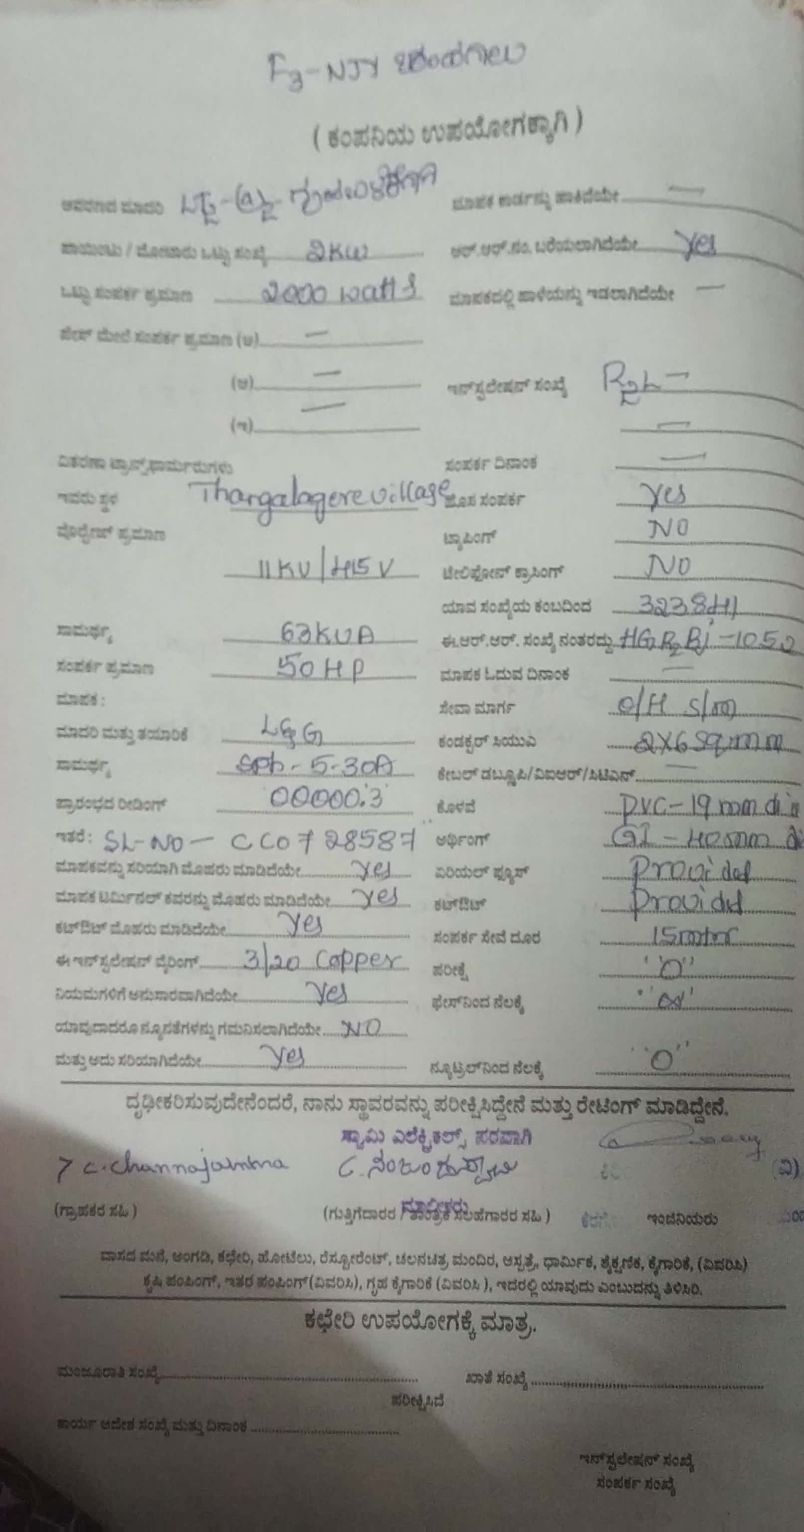 F3-NJY
( ಕಂಪನಿಯ ಉಪಯೋಗಕ್ಕಾಗಿ )
ಮಾಪಕ ಕಾರ್ಡನ್ನು ಹಾಕಿದೆಯೇ —
ಒಟ್ಟು ಸಂಖ್ಯೆ 2KW ಆರ್.ಆರ್.ನಂ. ಬರೆಯಲಾಗಿದೆಯೇ Yes
ಒಟ್ಟು ಸಂಪರ್ಕ ಪ್ರಮಾಣ 2000 watts ಮಾಪಕದಲ್ಲಿ ಹಾಳೆಯನ್ನು ಇಡಲಾಗಿದೆಯೇ —
ಮೇಲೆ ಸಂಪರ್ಕ ಪ್ರಮಾಣ (ಅ) —
(ಆ) — ಇನ್‌ಸ್ಟಲೇಷನ್ ಸಂಖ್ಯೆ
(ಇ) — —
ವಿತರಣಾ ಟ್ರಾನ್ಸ್‌ಫಾರ್ಮರುಗಳು ಸಂಪರ್ಕ ದಿನಾಂಕ —
ಇವರು ಸ್ಥಳ Thargalagere village ಹೊಸ ಸಂಪರ್ಕ Yes
ವೋಲ್ಟೇಜ್ ಪ್ರಮಾಣ ಟ್ಯಾಪಿಂಗ್ NO
11KV/415V ಟೆಲಿಫೋನ್ ಕ್ರಾಸಿಂಗ್ NO
ಯಾವ ಸಂಖ್ಯೆಯ ಕಂಬದಿಂದ
ಸಾಮರ್ಥ್ಯ 63KVA ಈ.ಆರ್.ಆರ್. ಸಂಖ್ಯೆ ನಂತರದ್ದು
ಸಂಪರ್ಕ ಪ್ರಮಾಣ 50HP ಮಾಪಕ ಓದುವ ದಿನಾಂಕ —
ಮಾಪಕ : ಸೇವಾ ಮಾರ್ಗ O/H S/m
ಮಾದರಿ ಮತ್ತು ತಯಾರಿಕೆ L&G ಕಂಡಕ್ಟರ್ ಸಿಯುಎ 2X6 Sq.mm
ಸಾಮರ್ಥ್ಯ Sph-5-30A ಕೇಬಲ್ ಡಬ್ಲೂಪಿ/ವಿಐಆರ್/ಸಿಟಿಎಸ್ —
ಪ್ರಾರಂಭದ ರೀಡಿಂಗ್ 00000.3 ಕೊಳವೆ PVC-19mm di
ಇತರೆ : SL-NO - CC0728587 ಅರ್ಥಿಂಗ್ GI - 40mm di
ಮಾಪಕವನ್ನು ಸರಿಯಾಗಿ ಮೊಹರು ಮಾಡಿದೆಯೇ Yes ಏರಿಯಲ್ ಫ್ಯೂಸ್ Provided
ಮಾಪಕ ಟರ್ಮಿನಲ್ ಕವರನ್ನು ಮೊಹರು ಮಾಡಿದೆಯೇ Yes ಕಟ್‌ಔಟ್ Provided
ಕಟ್‌ಔಟ್ ಮೊಹರು ಮಾಡಿದೆಯೇ Yes ಸಂಪರ್ಕ ಸೇವೆ ದೂರ 15mtr
ಈ ಇನ್‌ಸ್ಟಲೇಷನ್ ವೈರಿಂಗ್ 3/20 Copper ಪರೀಕ್ಷೆ "O"
ನಿಯಮಗಳಿಗೆ ಅನುಸಾರವಾಗಿದೆಯೇ Yes ಫೇಸ್‌ನಿಂದ ನೆಲಕ್ಕೆ "∞"
ಯಾವುದಾದರೂ ನ್ಯೂನತೆಗಳನ್ನು ಗಮನಿಸಲಾಗಿದೆಯೇ NO
ಮತ್ತು ಅದು ಸರಿಯಾಗಿದೆಯೇ Yes ನ್ಯೂಟ್ರಲ್‌ನಿಂದ ನೆಲಕ್ಕೆ "O"
ದೃಢೀಕರಿಸುವುದೇನೆಂದರೆ, ನಾನು ಸ್ಥಾವರವನ್ನು ಪರೀಕ್ಷಿಸಿದ್ದೇನೆ ಮತ್ತು ರೇಟಿಂಗ್ ಮಾಡಿದ್ದೇನೆ.
ಸ್ವಾಮಿ ಎಲೆಕ್ಟ್ರಿಕಲ್ಸ್ ಪರವಾಗಿ
C. Channajamma (ವಿ)
(ಗ್ರಾಹಕರ ಸಹಿ ) (ಗುತ್ತಿಗೆದಾರರ / ತಾಂತ್ರಿಕ ಸಲಹೆಗಾರರ ಸಹಿ ) ಇಂಜಿನಿಯರು
ವಾಸದ ಮನೆ, ಅಂಗಡಿ, ಕಛೇರಿ, ಹೋಟೆಲು, ರೆಸ್ಟೋರೆಂಟ್, ಚಲನಚಿತ್ರ ಮಂದಿರ, ಆಸ್ಪತ್ರೆ, ಧಾರ್ಮಿಕ, ಶೈಕ್ಷಣಿಕ, ಕೈಗಾರಿಕೆ, (ವಿವರಿಸಿ)
ಕೃಷಿ ಪಂಪಿಂಗ್, ಇತರ ಪಂಪಿಂಗ್ (ವಿವರಿಸಿ), ಗೃಹ ಕೈಗಾರಿಕೆ (ವಿವರಿಸಿ ), ಇದರಲ್ಲಿ ಯಾವುದು ಎಂಬುದನ್ನು ತಿಳಿಸಿರಿ.
ಕಛೇರಿ ಉಪಯೋಗಕ್ಕೆ ಮಾತ್ರ.
ಮಂಜೂರಾತಿ ಸಂಖ್ಯೆ ಖಾತೆ ಸಂಖ್ಯೆ
ಪರೀಕ್ಷಿಸಿದೆ
ಕಾರ್ಯ ಆದೇಶ ಸಂಖ್ಯೆ ಮತ್ತು ದಿನಾಂಕ
ಇನ್‌ಸ್ಟಲೇಷನ್ ಸಂಖ್ಯೆ
ಸಂಪರ್ಕ ಸಂಖ್ಯೆ